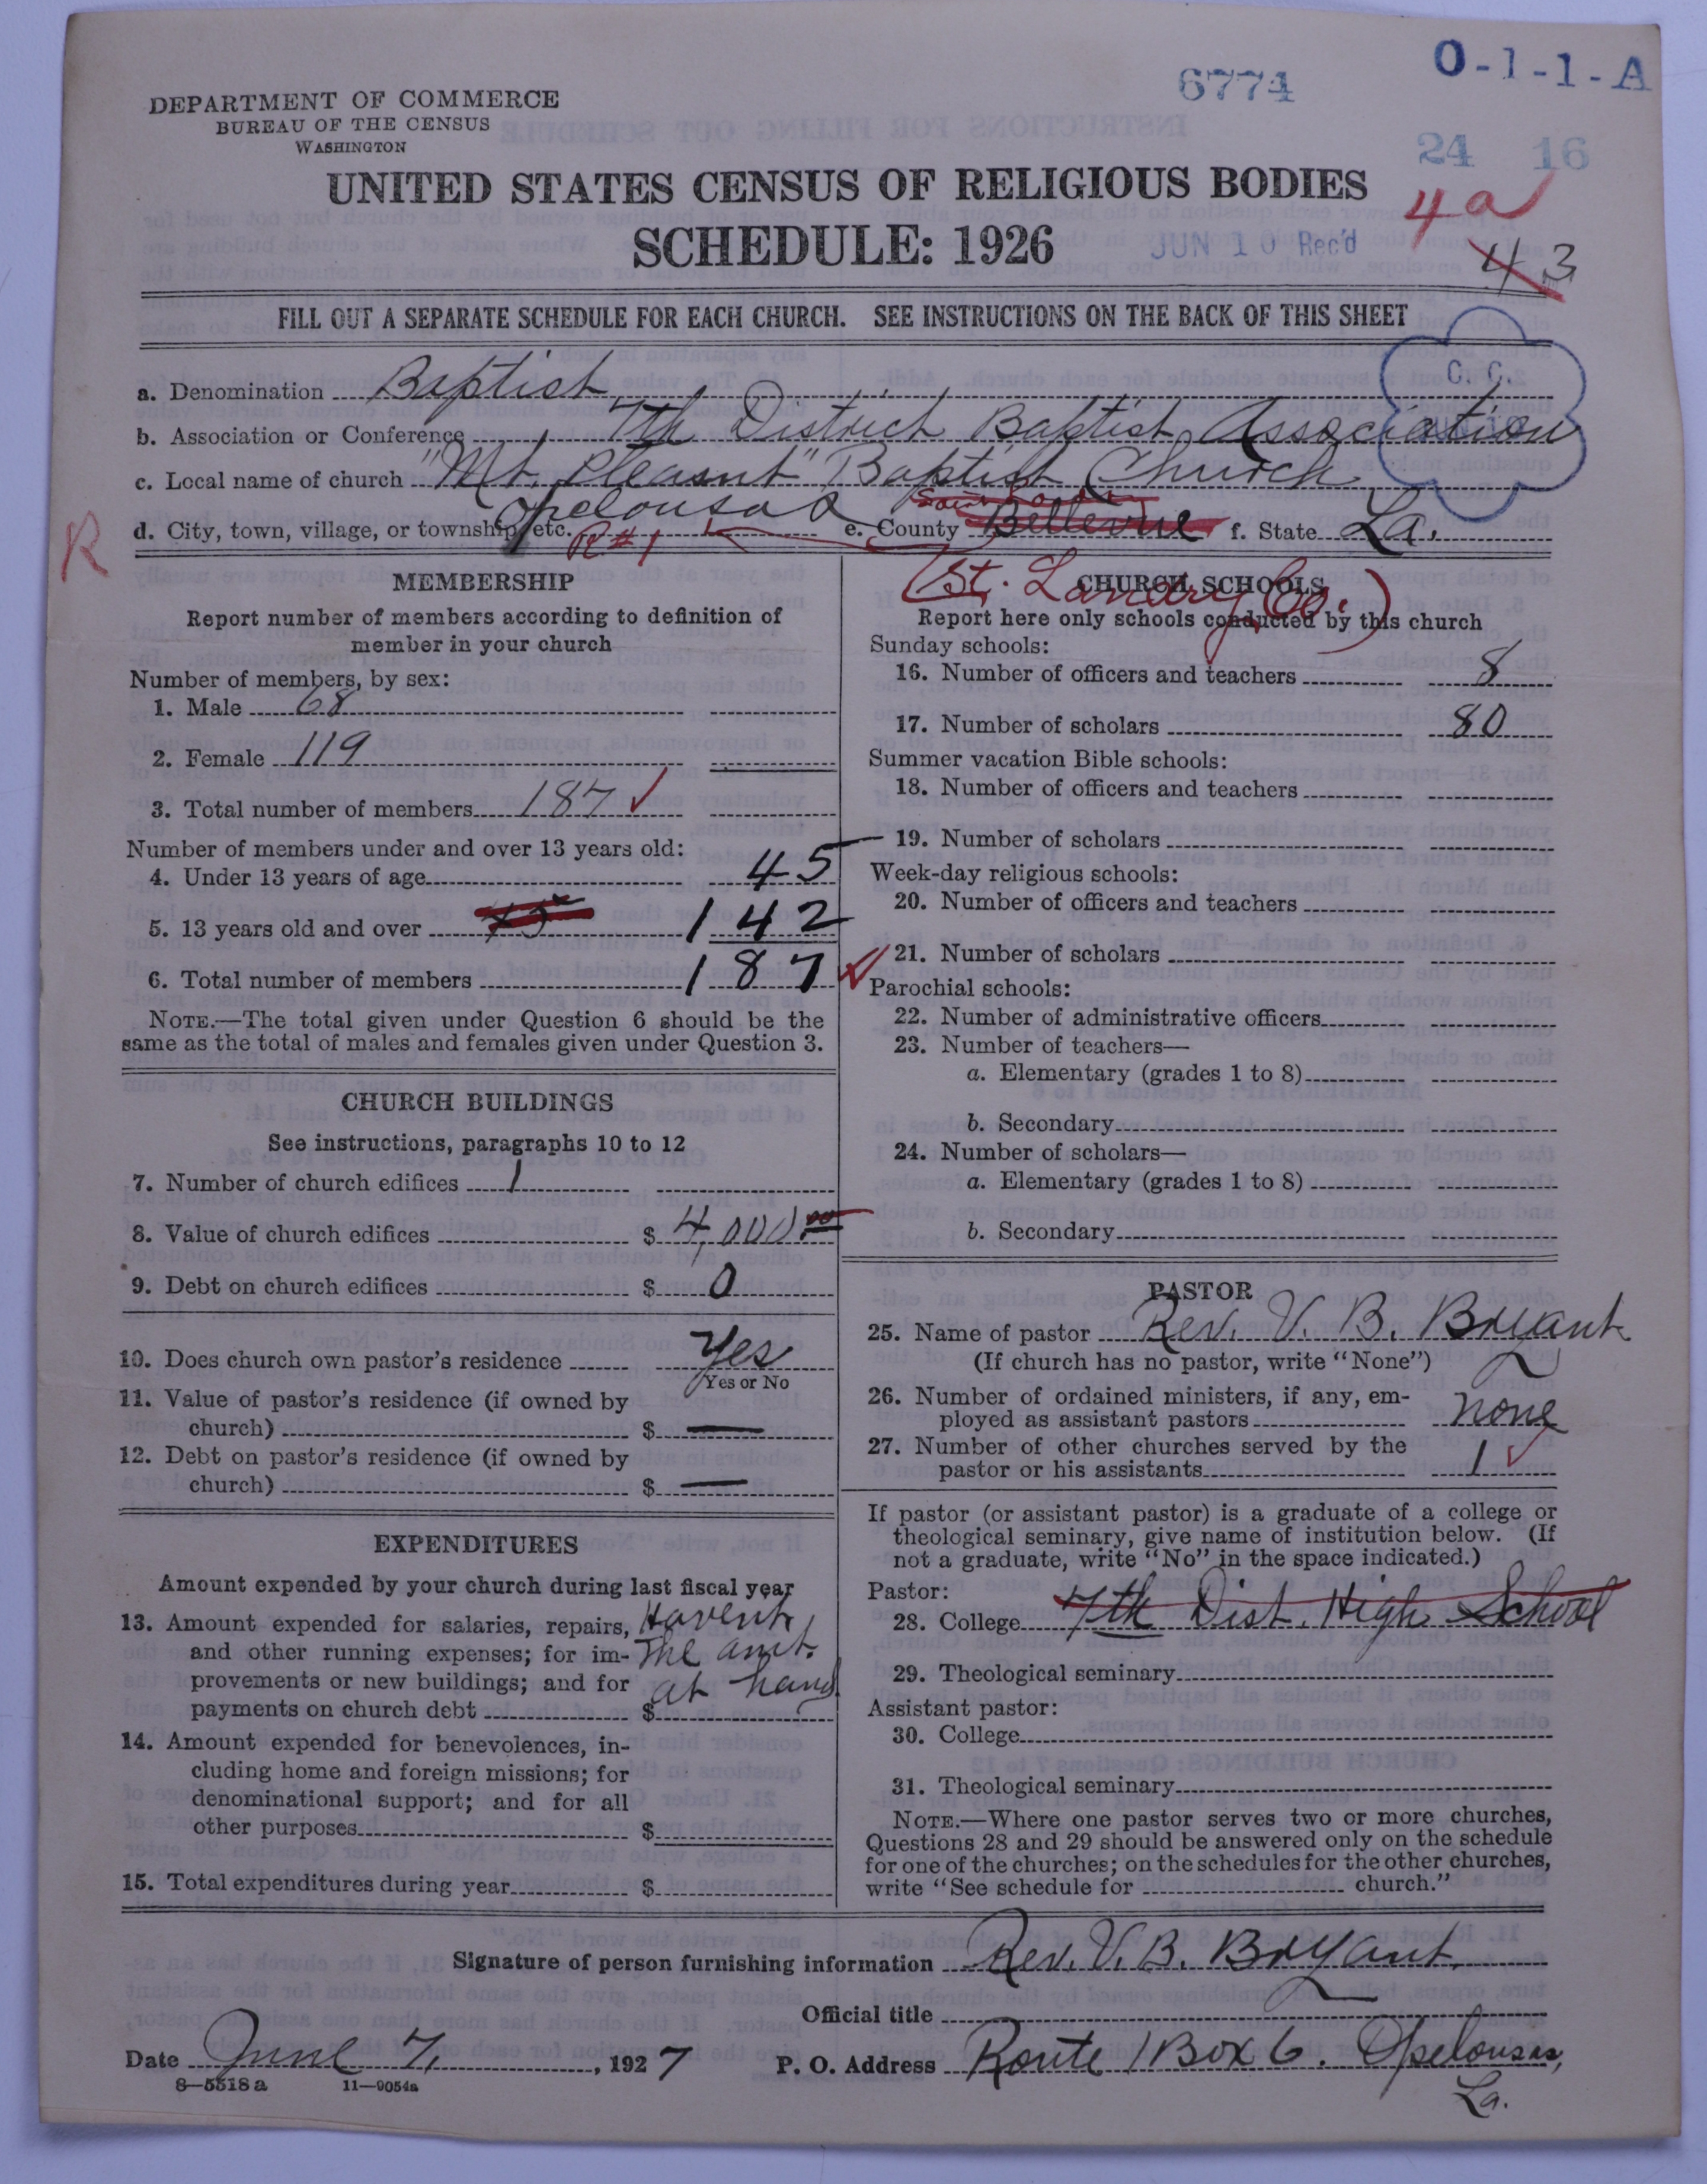 DEPARTMENT OF COMMERCE
BUREAU OF THE CENSUS
WASHINGTON
6774
O-1-1-A
24 16
UNITED STATES CENSUS OF RELIGIOUS BODIES
4a
SCHEDULE: 1926
JUN 10 Rec'd
4 3
FILL OUT A SEPARATE SCHEDULE FOR EACH CHURCH. SEE INSTRUCTIONS ON THE BACK OF THIS SHEET
C. C.
a. Denomination Baptist
b. Association or Conference 7th District Baptist Association
c. Local name of church "Mt. Pleasnt" Baptist Church
d. City, town, village, or township, etc. Opelousas R#1 e. County Bellevue f. State La.
R
(St. Landry Co.)
MEMBERSHIP
Report number of members according to definition of
member in your church
Number of members, by sex:
1. Male 68
2. Female 119
3. Total number of members 187
Number of members under and over 13 years old:
4. Under 13 years of age 45
5. 13 years old and over 142
6. Total number of members 187
NOTE.—The total given under Question 6 should be the
same as the total of males and females given under Question 3.
CHURCH BUILDINGS
See instructions, paragraphs 10 to 12
7. Number of church edifices 1
8. Value of church edifices $ 4,000.00
9. Debt on church edifices $ 0
10. Does church own pastor's residence Yes
Yes or No
11. Value of pastor's residence (if owned by
church) $ —
12. Debt on pastor's residence (if owned by
church) $ —
EXPENDITURES
Amount expended by your church during last fiscal year
13. Amount expended for salaries, repairs, Havent
and other running expenses; for im- the amt.
provements or new buildings; and for at hand
payments on church debt $
14. Amount expended for benevolences, in-
cluding home and foreign missions; for
denominational support; and for all
other purposes $
15. Total expenditures during year $
CHURCH SCHOOLS
Report here only schools conducted by this church
Sunday schools:
16. Number of officers and teachers 8
17. Number of scholars 80
Summer vacation Bible schools:
18. Number of officers and teachers
19. Number of scholars
Week-day religious schools:
20. Number of officers and teachers
21. Number of scholars
Parochial schools:
22. Number of administrative officers
23. Number of teachers—
a. Elementary (grades 1 to 8)
b. Secondary
24. Number of scholars—
a. Elementary (grades 1 to 8)
b. Secondary
PASTOR
25. Name of pastor Rev. V. B. Bryant
(If church has no pastor, write "None")
26. Number of ordained ministers, if any, em-
ployed as assistant pastors none
27. Number of other churches served by the
pastor or his assistants 1
If pastor (or assistant pastor) is a graduate of a college or
theological seminary, give name of institution below. (If
not a graduate, write "No" in the space indicated.)
Pastor:
28. College 7th Dist. High School
29. Theological seminary
Assistant pastor:
30. College
31. Theological seminary
NOTE.—Where one pastor serves two or more churches,
Questions 28 and 29 should be answered only on the schedule
for one of the churches; on the schedules for the other churches,
write "See schedule for church."
Signature of person furnishing information Rev. V. B. Bryant
Official title
Date June 7, 1927 P. O. Address Route 1 Box 6. Opelousas,
La.
8—5518 a 11—9054a